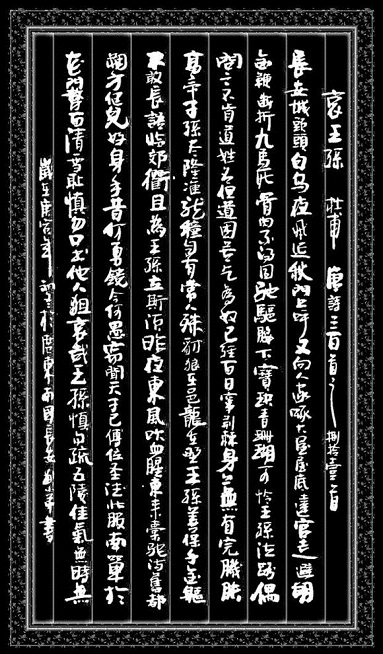 哀王孫 杜甫 唐詩三百首之 捌拾壹首
長安城頭頭白烏夜飛延秋門上呼又向人家啄大屋屋底達官走避胡
金鞭斷折九馬死骨肉不待同馳驅腰下寶玦青珊瑚可憐王孫泣路隅
問之不肯道姓名但道困苦乞為奴已經百日竄荊棘身上無有完肌膚
高帝子孫盡隆準龍種自與常人殊豺狼在邑龍在野王孫善保千金軀
不敢長語臨郊衢且為王孫立斯須昨夜東風吹血腥東來橐駝滿舊都
朔方健兒好身手昔何勇銳今何愚竊聞天子已傳位聖德北服南單于
花門剺面請雪恥慎勿出口他人狙哀哉王孫慎勿疏五陵佳氣無時無
歲在庚寅年 於廣東南國長安 書